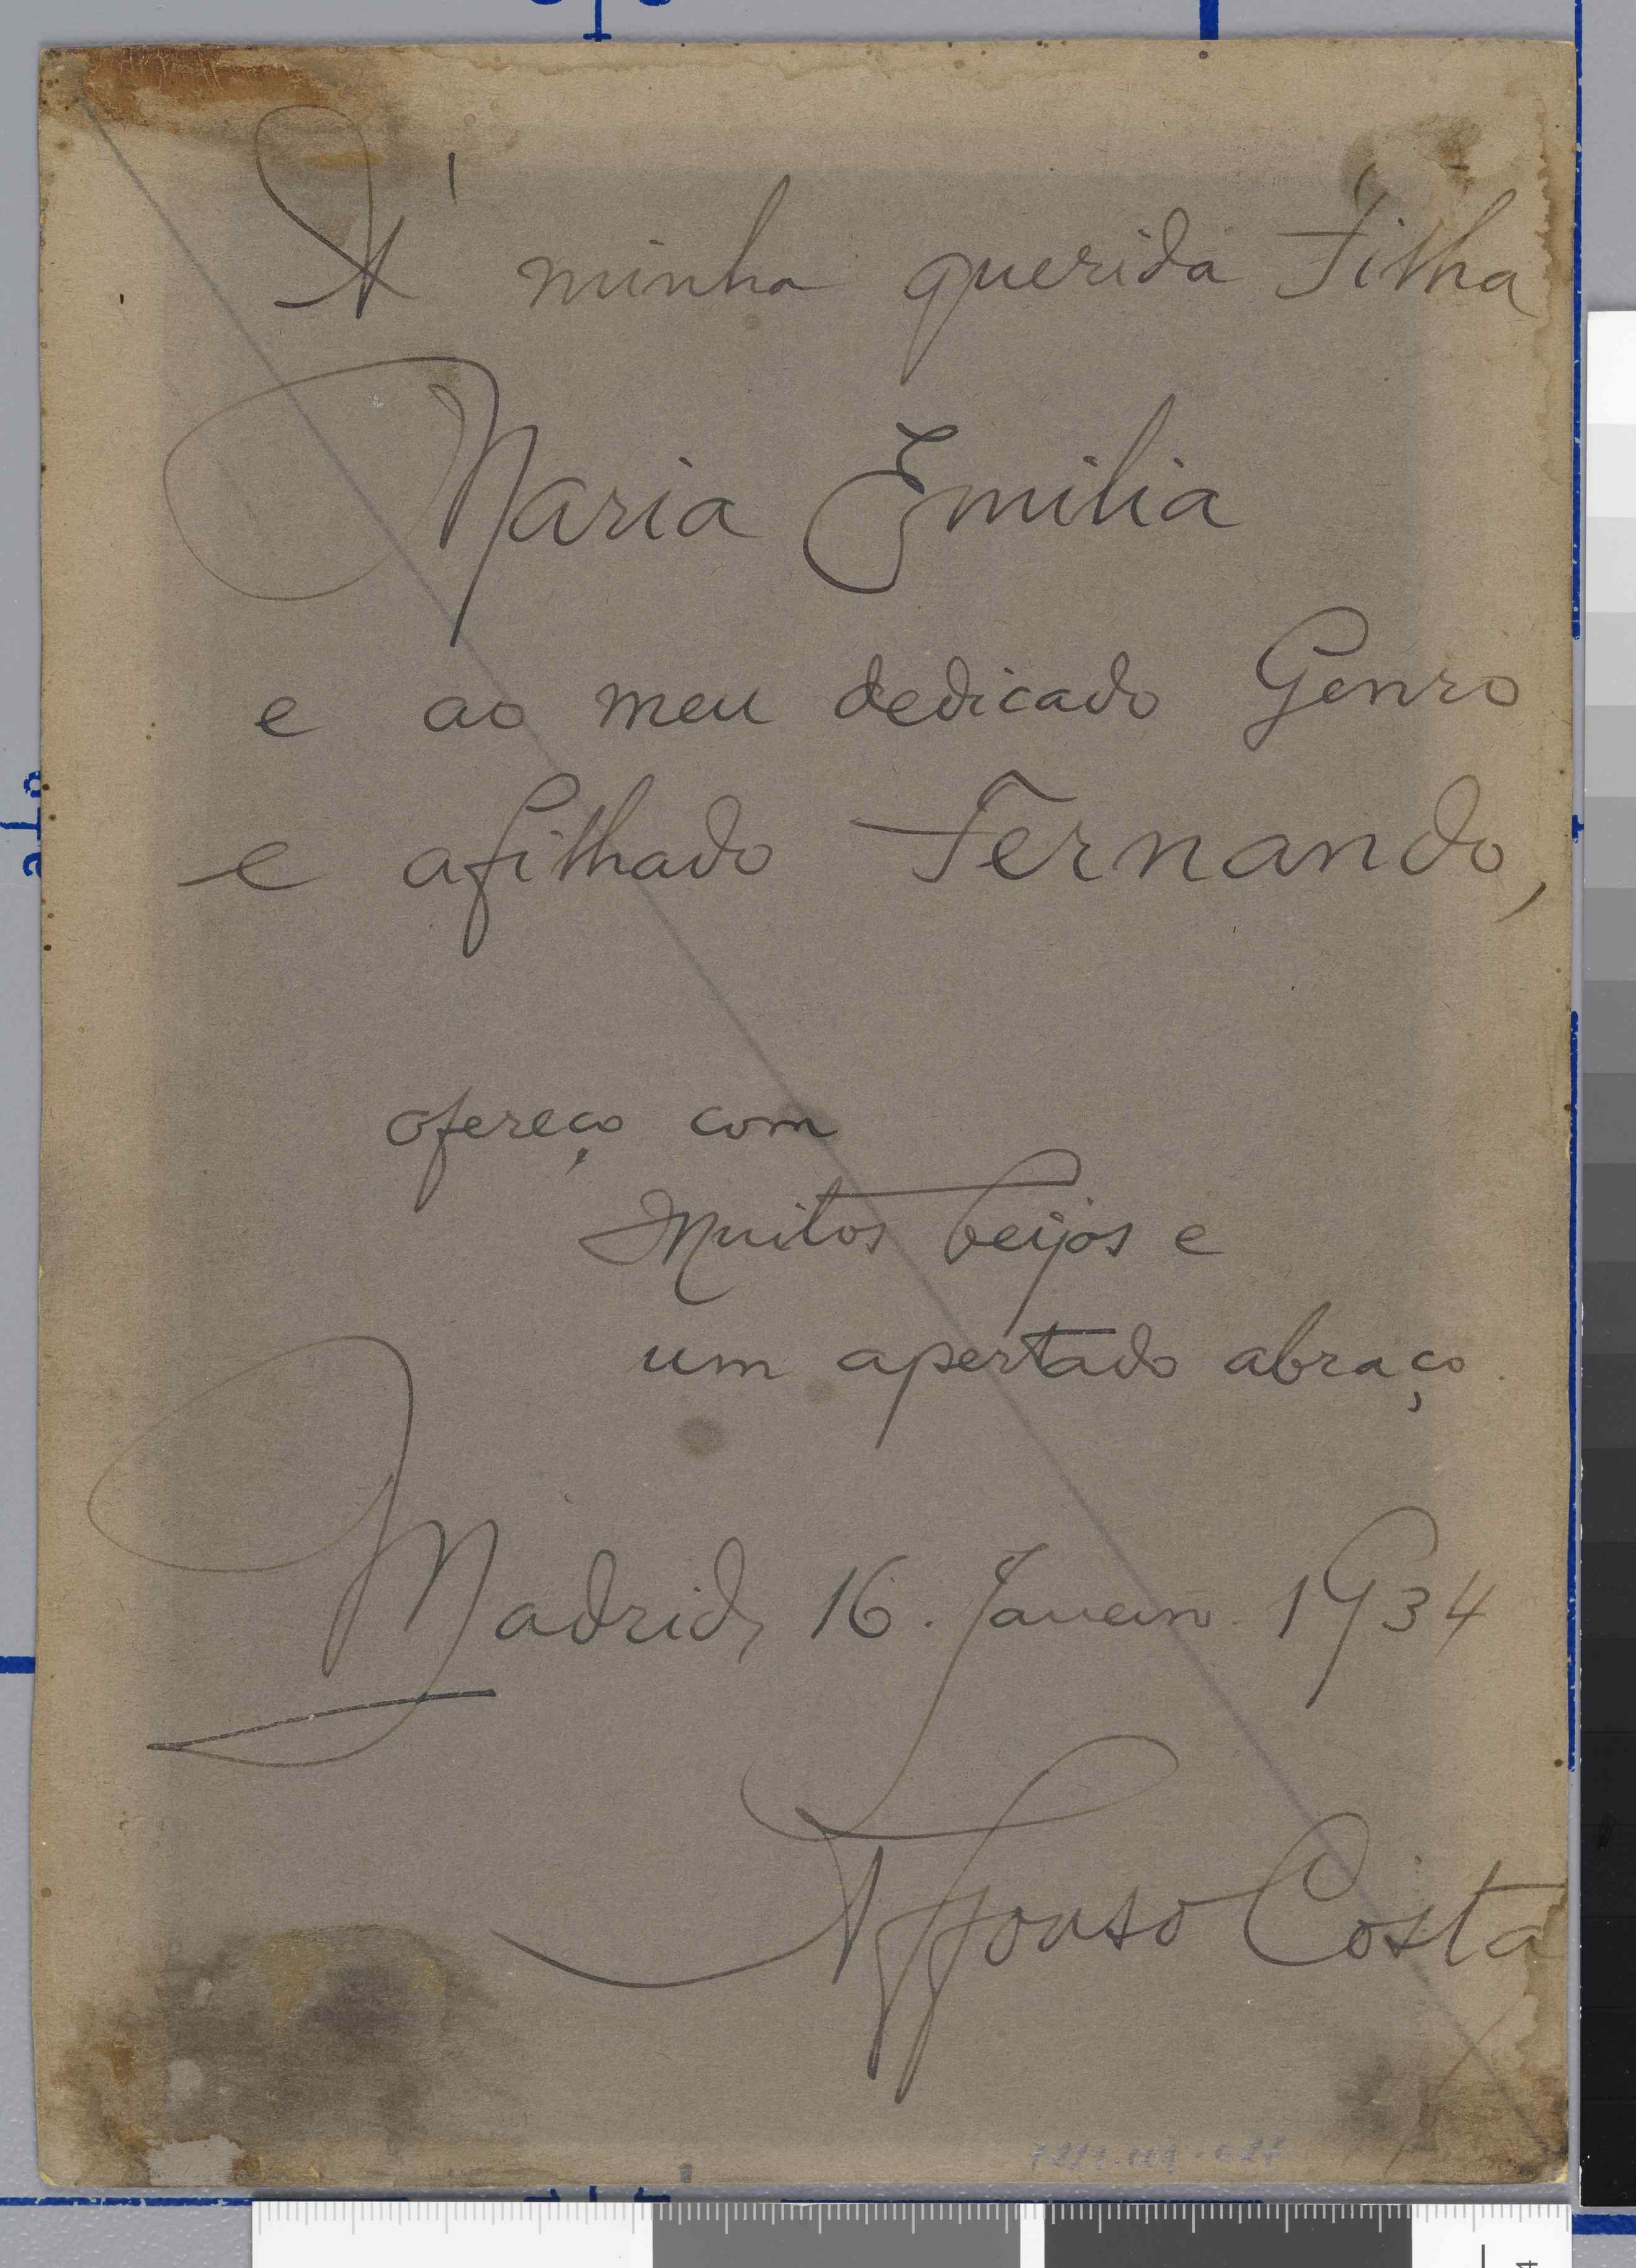 A' minha querida Filha
Maria Emilia
e ao meu dedicado Genro
e afilhado Fernando,
ofereço com
muitos beijos e
um apertado abraço
Madrid, 16. Janeiro. 1934
Affonso Costa